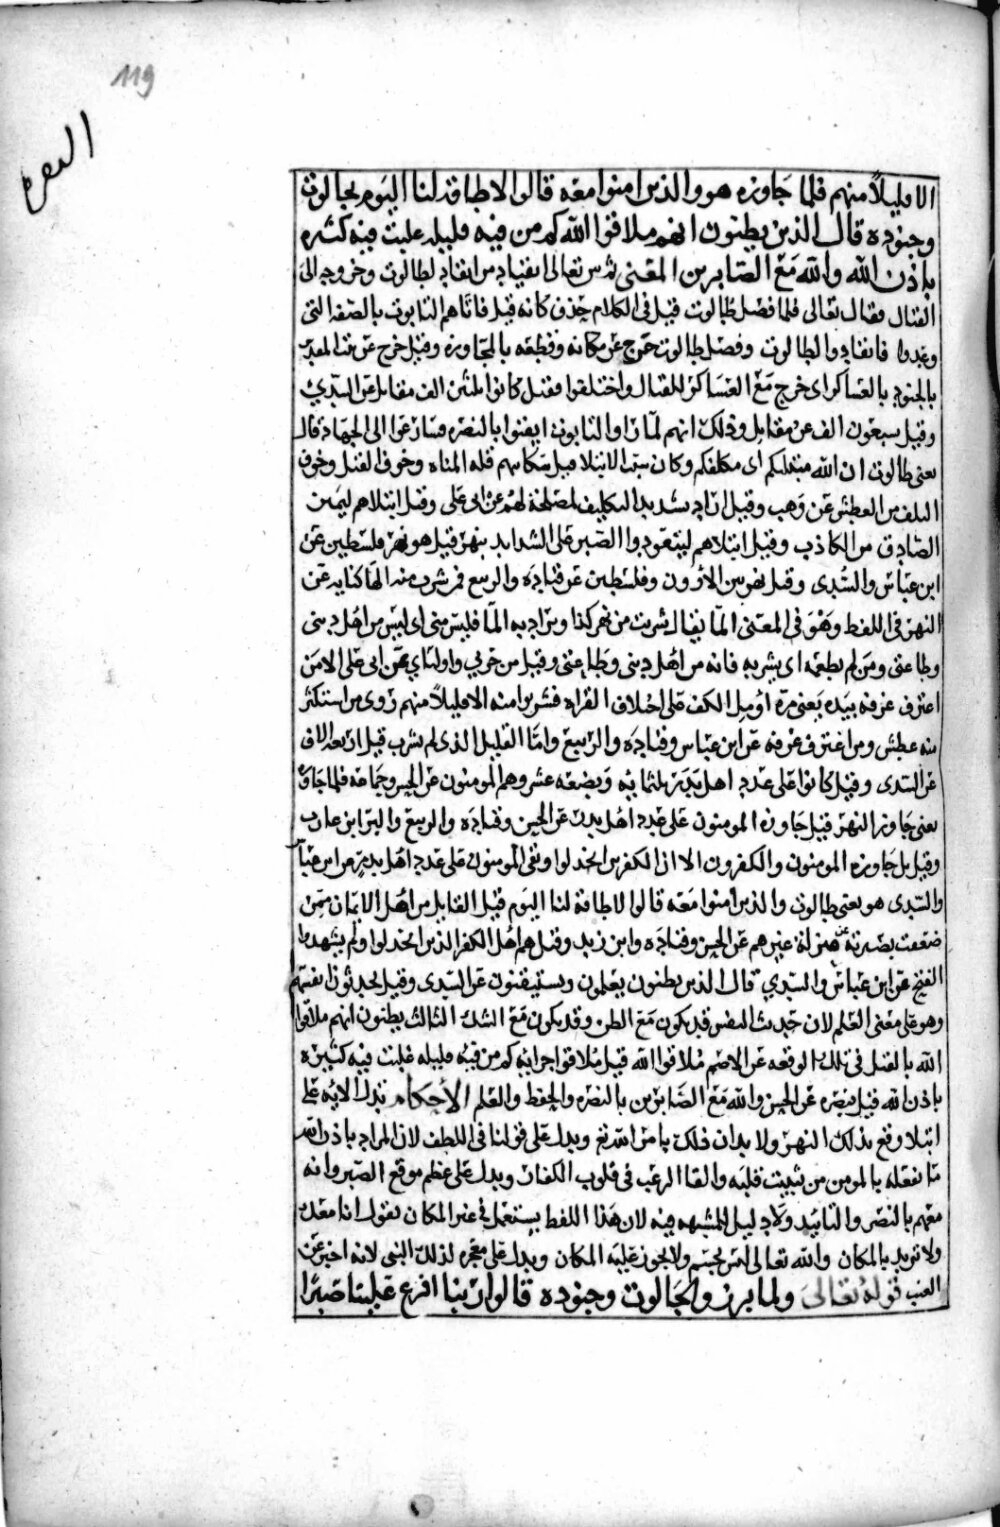 119
البقرة
الا قليلاً منهم فلما جاوزه هو والذين امنوا معه قالوا لاطاقة لنا اليوم بجالوت
وجنوده قال الذين يظنون انهم ملاقوا الله كم من فية قليلة غلبت فية كثيرة
باذن الله والله مع الصابرين المعنى ثم بين تعالى انقياد من انقاد لطالوت وخروجه الى
القتال فقال تعالى فلما فصل طالوت قيل في الكلام حذف كانه قيل فاتاهم التابوت بالصفة التي
وعدوا فانقادوا لطالوت وفصل طالوت خرج عن مكانه وقطعه بالمجاوزه وقيل خرج عن بيت المقدس
بالجنود بالعساكر اى خرج مع العساكر للقتال واختلفوا فقيل كانوا ثمانين الف مقاتل عن السدي
وقيل سبعون الف عن مقاتل وذلك انهم لما راوا التابوت ايقنوا بالنصره فسارعوا الى الجهاد قال
يعنى طالوت ان الله مبتليكم اى مكلفكم وكان سبب الابتلا قبل شكايتهم قلة المياه وخوف القتل وخوف
التلف من العطش عن وهب وقيل اراد تشديد التكليف لمصلحة لهم عن ابى على وقيل ابتلاهم ليميز
الصادق من الكاذب وقيل ابتلاهم ليتعودوا الصبر على الشدايد بنهر قيل هو نهر فلسطين عن
ابن عباس والسدى وقيل نهر بين الاردن وفلسطين عن قتاده والربيع فمن شرب منه الها كناية عن
النهر في اللفظ وهو في المعنى الما يقال شربت من نهر كذا ويراد به الما فليس مني اى ليس من اهل ديني
وطاعتى ومن لم يطعمه اى يشربه فانه من اهل ديني وطاعتى وقيل من حزبي واوليائي عن ابى على الا من
اغترف غرفه بيده يعنى مرة او مل الكف على اختلاف القراه فشربوا منه الا قليلاً منهم روى من استكثر
منه عطش ومن اغترف غرفه عن ابن عباس وقتاده والربيع واما القليل الذى لم يشرب قيل اربعه الاف
عن السدى وقيل كانوا على عدد اهل بدر ثلثمايه وبضعه عشر وهم المومنون عن الحسن وجماعه فلما جاوزه
يعنى جاوز النهر قيل جاوزه المومنون على عدد اهل بدر عن الحسن وقتاده والربيع والبرا ابن عازب
وقيل بل جاوزه المومنون والكفرون الا ان الكفرين انخذلوا وبقى المومنون على عدد اهل بدر عن ابن عباس
والسدى هو يعنى طالوت والذين امنوا معه قالوا لا طاقة لنا اليوم قيل القايل من اهل الايمان ممن
ضعفت بصيرته عن منزلة غيرهم عن الحسن وقتاده وابن زيد وقيل هم اهل الكفر الذين انخذلوا ولم يشهدوا
الفتح عن ابن عباس والسدي قال الذين يظنون يعلمون ويستيقنون عن السدى وقيل يحدثون انفسهم
وهو على معنى العلم لان حديث النفس قد يكون مع الظن وقد يكون مع الشك الثالث يظنون انهم ملاقوا
الله بالقتل في تلك الوقعه عن الاصم ملاقوا الله قيل ملاقوا جزايه كم من فية قليله غلبت فية كثيرة
باذن الله قيل بنصره عن الحسن والله مع الصابرين بالنصره والحفظ والعلم الاحكام تدل الايه على
ابتلا وقع بذلك النهر ولا بد ان ذلك بامر الله تع ويدل على قولنا في اللطف لان المراد باذن الله
ما يفعله بالمومن من تثبيت قلبه والقا الرعب في قلوب الكفار ويدل على عظم موقع الصبر وانه
معهم بالنصر والتاييد ولا دليل للمشبهه فيه لان هذا اللفظ يستعمل في غير المكان نقول انا معك
ولا نريد بالمكان والله تعالى ليس بجسم ولا يجوز عليه المكان ويدل على معجزه لذلك النبى لانه اخبر عن
الغيب قوله تعالى ولما برزوا لجالوت وجنوده قالوا ربنا افرغ علينا صبرًا